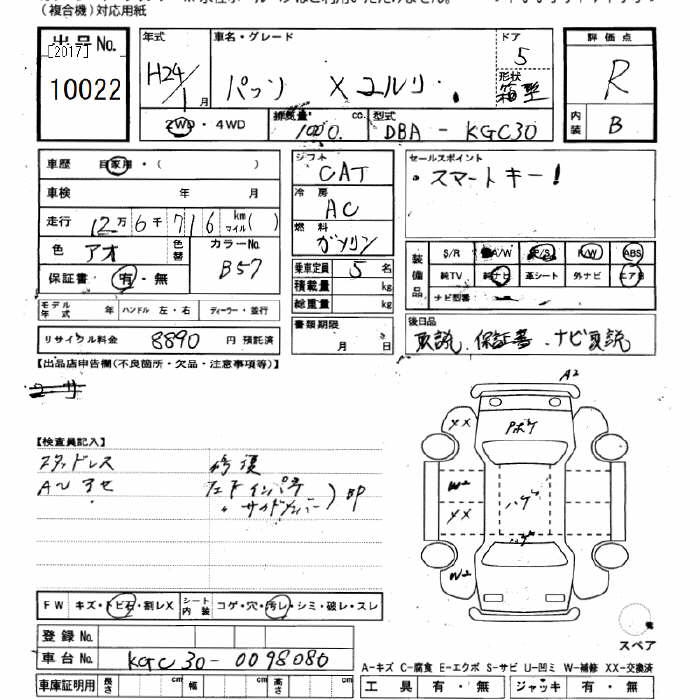 (複合機)対応用紙
出品No.
[2017]
10022
年式
H24/1月
車名・グレード
パッソ Xユルリ
ドア
5
形状
箱型
評価点
R
内装
B
2WD・4WD
排気量
1000.
cc.
型式
DBA-KGC30
車歴 自家用・( )
車検 年 月
走行 12万6千716 km マイル( )
色 アオ
色替
カラーNo.
B57
保証書 有・無
シフト
CAT
冷房
AC
燃料
ガソリン
乗車定員 5名
積載量 kg
総重量 kg
セールスポイント
・スマートキー!
装備品
S/R A/W P/S P/W ABS
純TV 純ナビ 革シート 外ナビ エアB
ナビ型番
モデル年式 年 ハンドル 左・右 ディーラー・並行
リサイクル料金 8890 円 預託済
書類期限
月 日
後日品
取説、保証書、ナビ取説
【出品店申告欄(不良箇所・欠品・注意事項等)】
【検査員記入】
スタッドレス
修復
インパネ
サイドメンバー
A2
XX
W2
XX
W2
ハゲ
FW キズ・トビ石・割レX
シート内装 コゲ・穴・汚レ・シミ・破レ・スレ
登録No.
車台No. KGC30-0098080
車庫証明用 長さ cm 幅 cm 高さ cm
スペア
A-キズ C-腐食 E-エクボ S-サビ U-凹ミ W-補修 XX-交換済
工具 有・無 ジャッキ 有・無